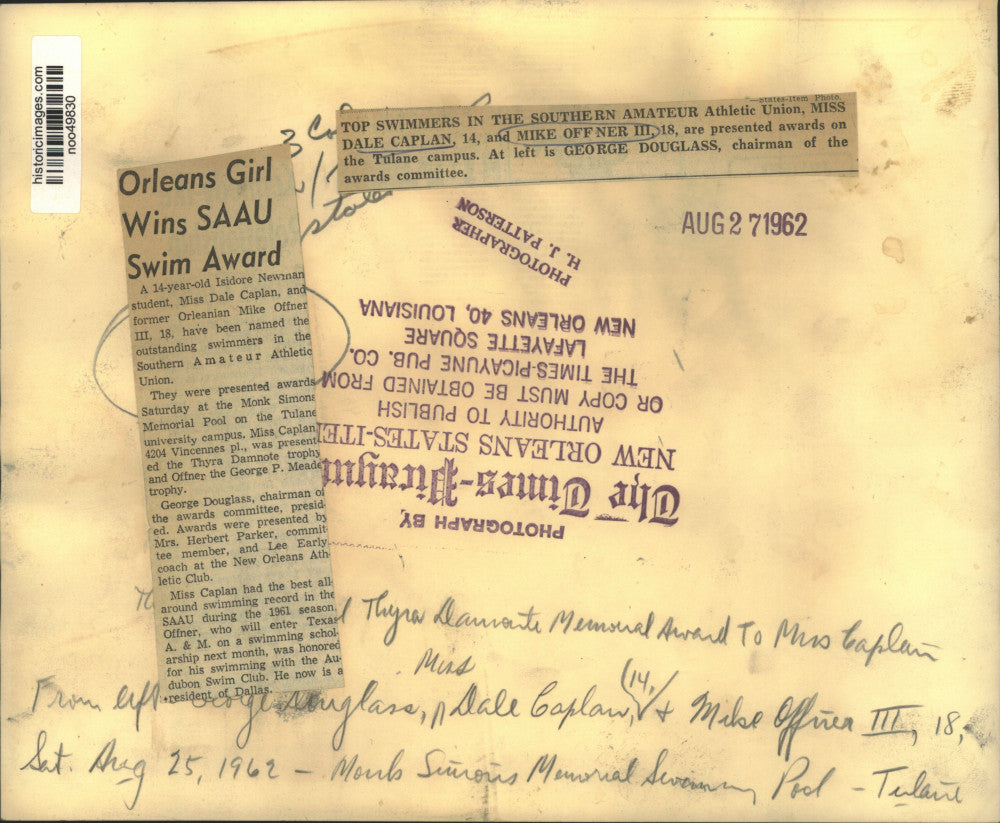 historicimages.com
noo49830
3 Co
—States-Item Photo.
TOP SWIMMERS IN THE SOUTHERN AMATEUR Athletic Union, MISS
DALE CAPLAN, 14, and MIKE OFFNER III, 18, are presented awards on
the Tulane campus. At left is GEORGE DOUGLASS, chairman of the
awards committee.
states
Orleans Girl
Wins SAAU
Swim Award
A 14-year-old Isidore Newman
student, Miss Dale Caplan, and
former Orleanian Mike Offner
III, 18, have been named the
outstanding swimmers in the
Southern Amateur Athletic
Union.
They were presented awards
Saturday at the Monk Simons
Memorial Pool on the Tulane
university campus. Miss Caplan,
4204 Vincennes pl., was present-
ed the Thyra Damnote trophy
and Offner the George P. Meade
trophy.
George Douglass, chairman of
the awards committee, presid-
ed. Awards were presented by
Mrs. Herbert Parker, commit-
tee member, and Lee Early,
coach at the New Orleans Ath-
letic Club.
Miss Caplan had the best all-
around swimming record in the
SAAU during the 1961 season.
Offner, who will enter Texas
A. & M. on a swimming schol-
arship next month, was honored
for his swimming with the Au-
dubon Swim Club. He now is a
resident of Dallas.
AUG 27 1962
PHOTOGRAPHER
H. J. PATTERSON
PHOTOGRAPH BY
The Times-Picayun
NEW ORLEANS STATES-ITE
AUTHORITY TO PUBLISH
OR COPY MUST BE OBTAINED FROM
THE TIMES-PICAYUNE PUB. CO.
LAFAYETTE SQUARE
NEW ORLEANS 40, LOUISIANA
Thyra Damonte Memorial Award To Miss Caplan
Miss
From left George Douglass, Dale Caplan, 14, & Mike Offner III, 18,
Sat. Aug 25, 1962 – Monk Simons Memorial Swimming Pool – Tulane